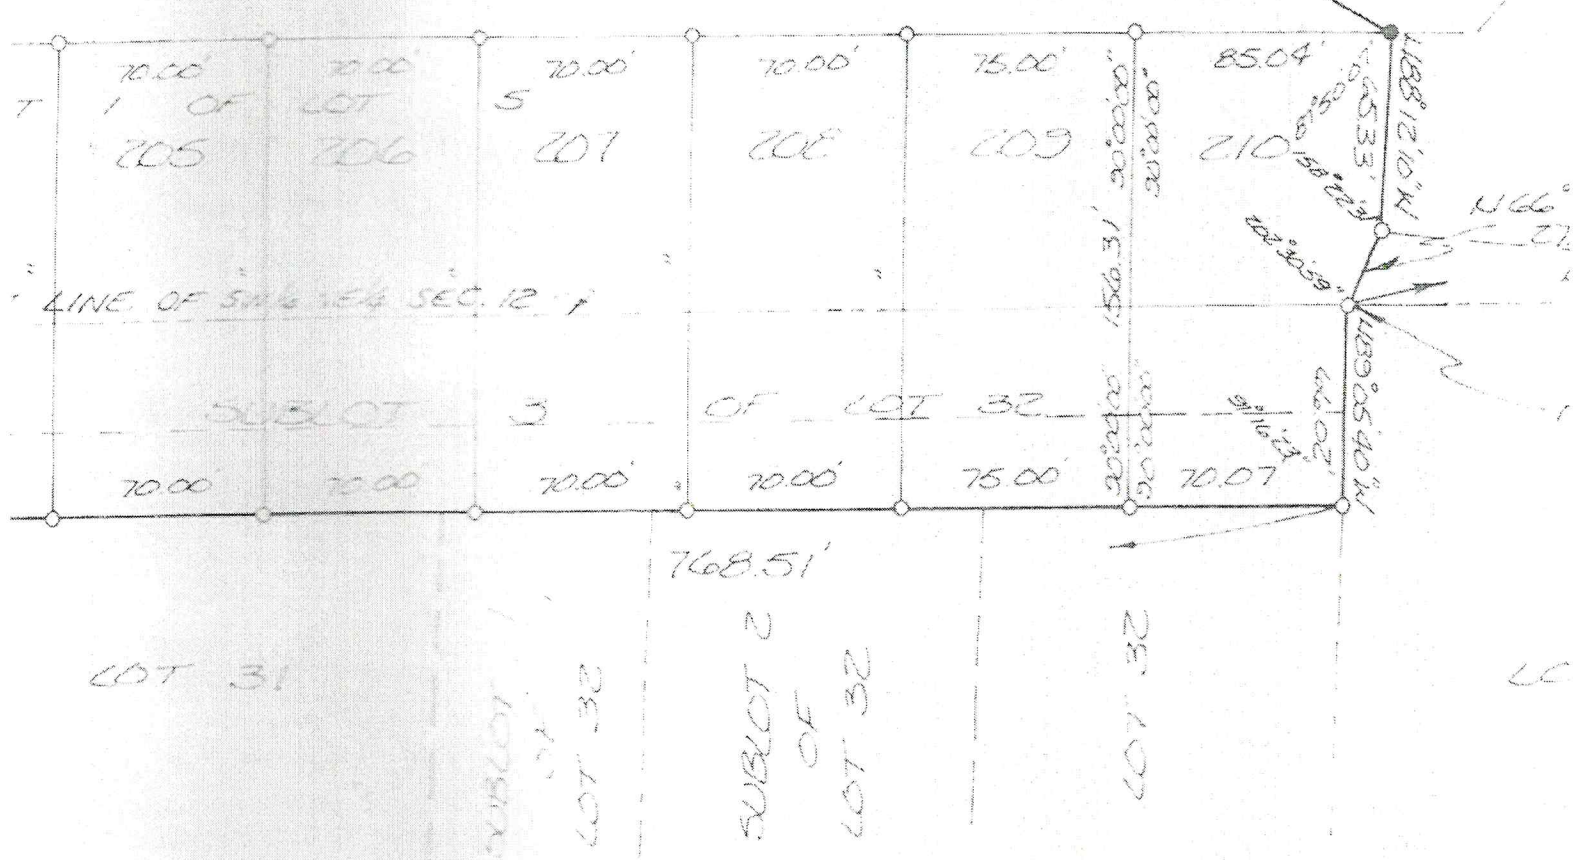 70.00' 70.00' 70.00' 70.00' 75.00' 85.04'
T 1 OF LOT 5
205 206 207 208 209 210
90°00'00" 90°00'00"
65.33'
N88°12'10"W
158°22'
N66°
27
202°30'59"
156.31'
LINE OF SW¼ SE¼ SEC. 12
N89°05'40"W
66.02'
SUBLOT 3 OF LOT 32
91°16'23"
90°00'00" 90°00'00"
70.00' 70.00' 70.00' 70.00' 75.00' 70.07'
768.51'
LOT 31
SUBLOT
OF
LOT 32
SUBLOT 2
OF
LOT 32
LOT 32
LO